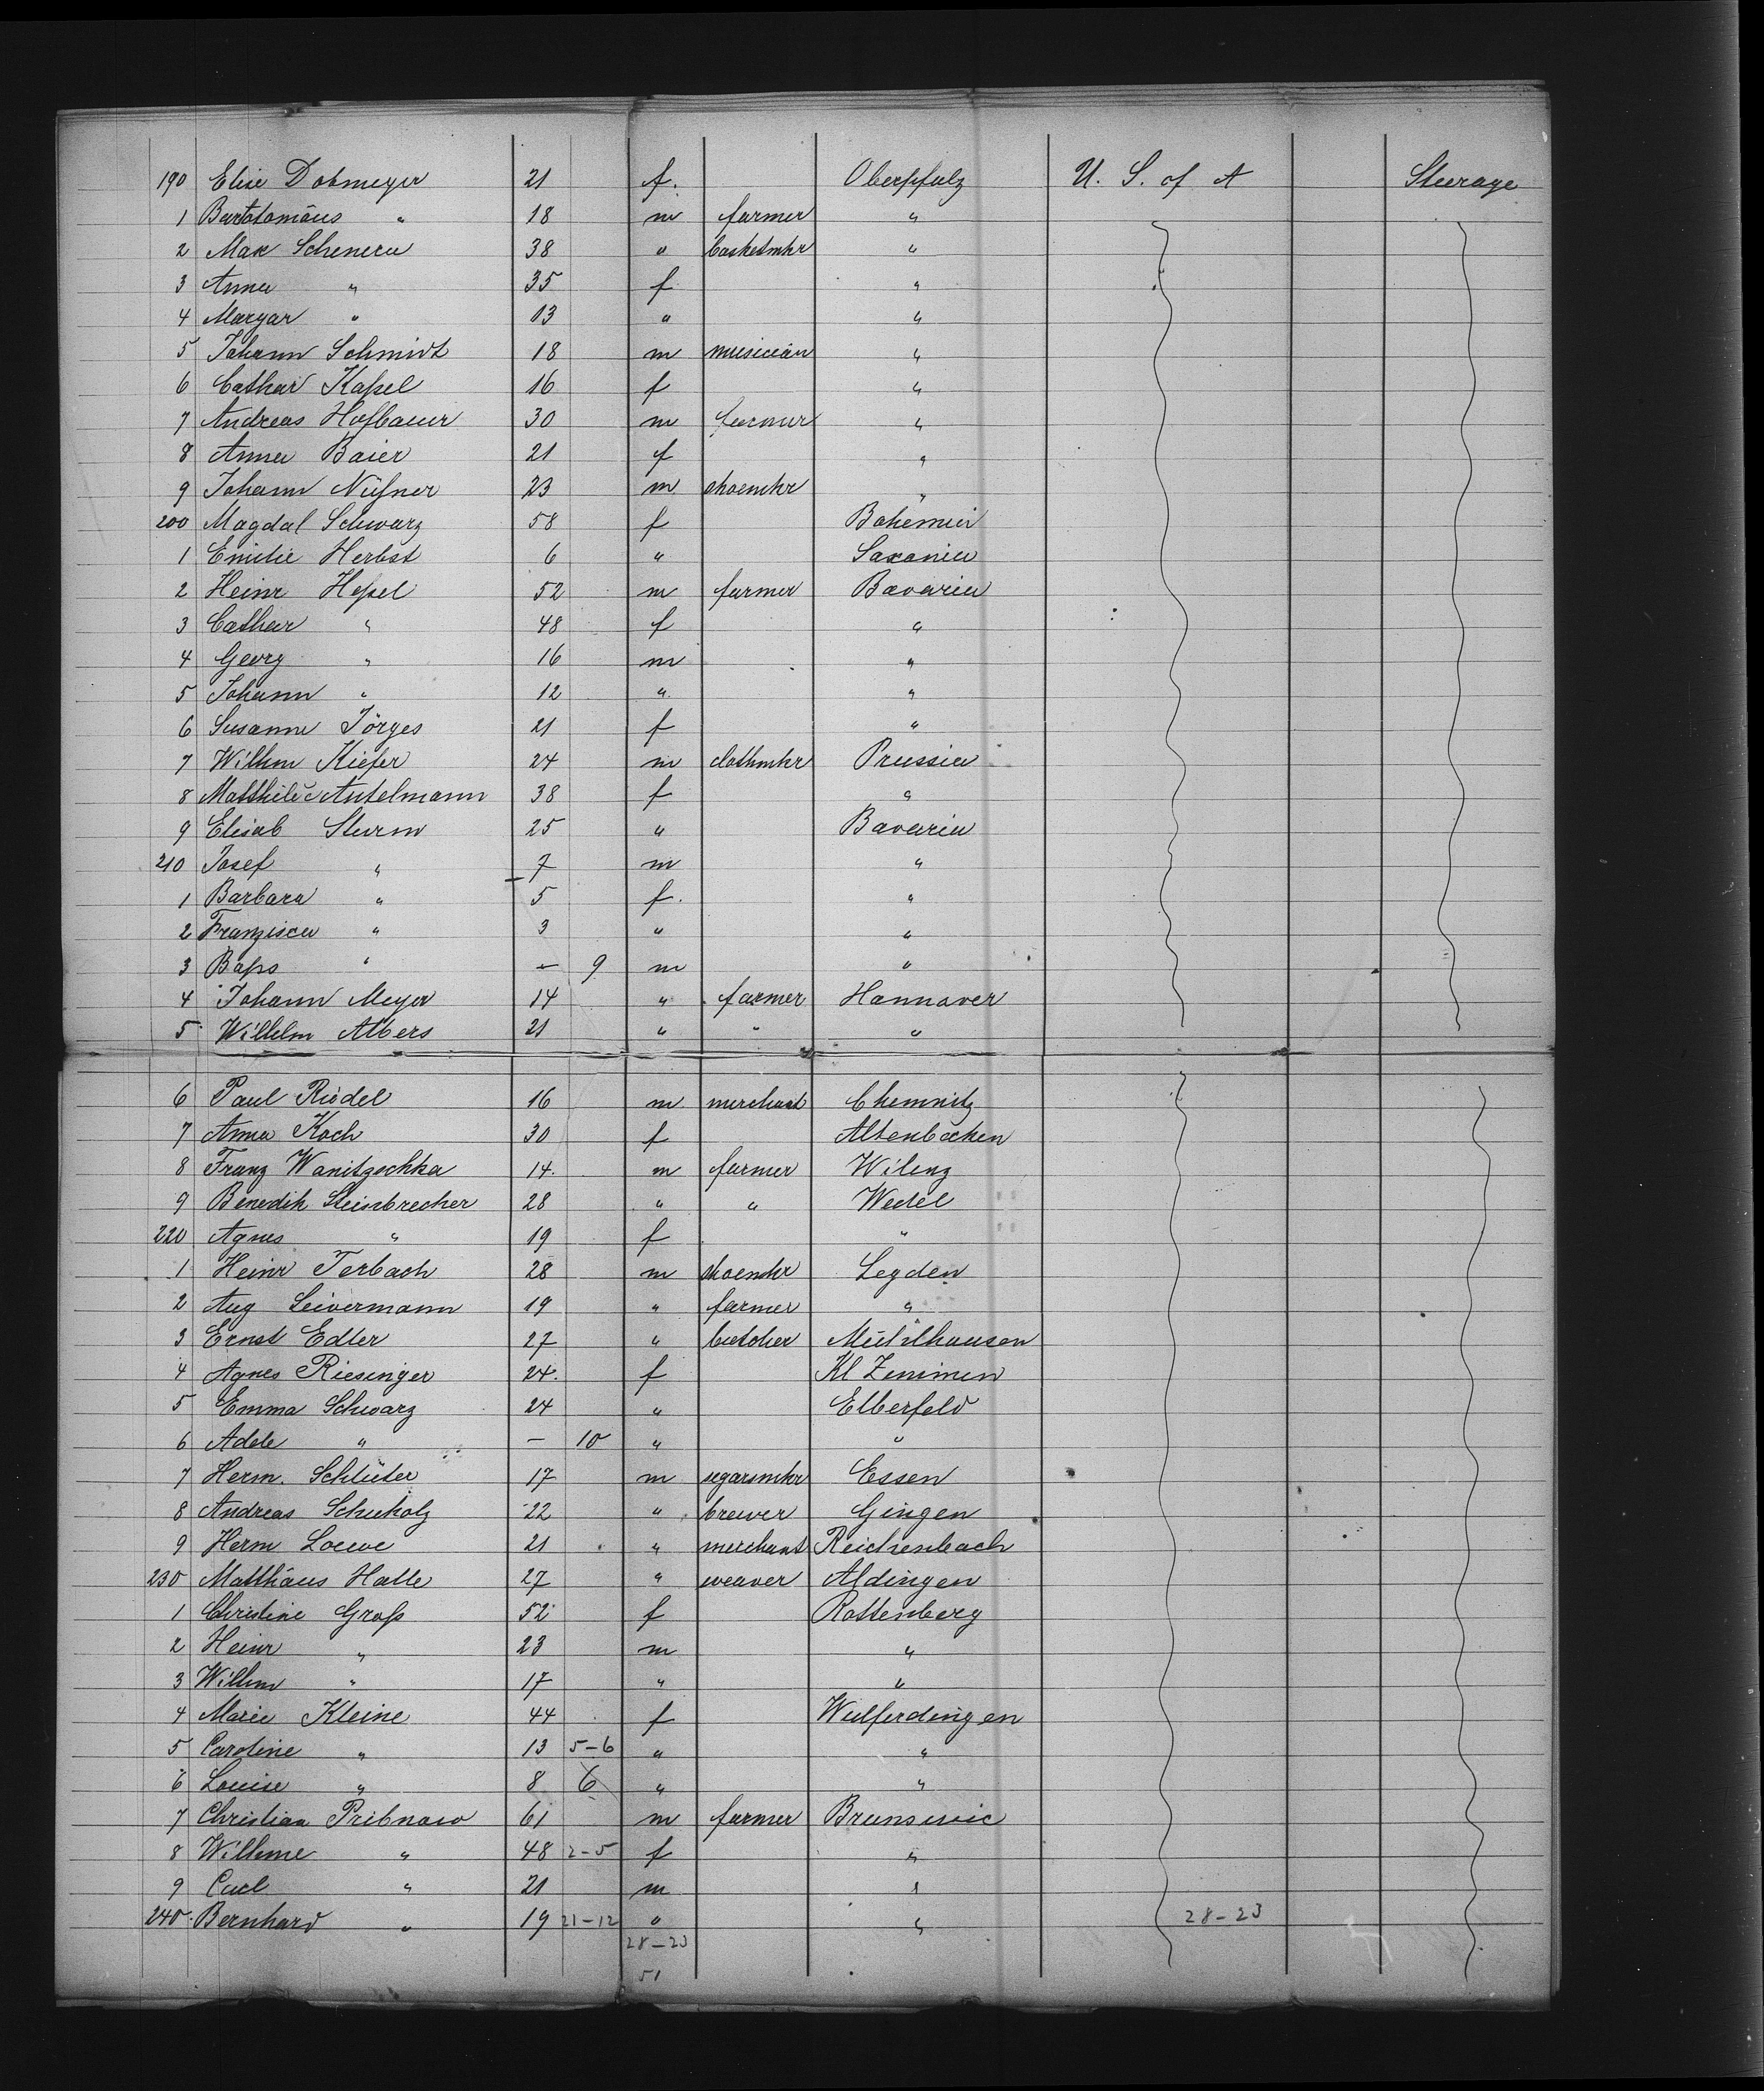 190 Elise Dobmeyer 21 f. Oberpfalz U. S. of A Steerage
1 Bartolomäus " 18 m farmer "
2 Max Scheurer 38 " basketmkr "
3 Anna " 35 f "
4 Margar " 13 " "
5 Johann Schmidt 18 m musician "
6 Cathar Kaßel 16 f "
7 Andreas Hofbauer 30 m farmer "
8 Anna Baier 21 f "
9 Johann Nüßner 23 m shoemkr "
200 Magdal Schwarz 58 f Bohemia
1 Emilie Herbst 6 " Saxonia
2 Heinr Heßel 52 m farmer Bavaria
3 Cathar " 48 f "
4 Georg " 16 m "
5 Johann " 12 " "
6 Susanne Jörges 21 f "
7 Wilhm Kiefer 24 m clothmkr Prussia
8 Matthilde Antelmann 38 f "
9 Elisab Sturm 25 " Bavaria
210 Josef " 7 m "
1 Barbara " 5 f. "
2 Franzisca " 3 " "
3 " — 9 m "
4 Johann Meyer 14 " farmer Hannover
5 Wilhelm Albers 21 " " "
6 Paul Riedel 16 m merchant Chemnitz
7 Anna Koch 30 f Altenbochen
8 Franz Wanitzschka 14. m farmer Wilenz
9 Benedik Steinbrecher 28 " " Wedel
220 Agnes " 19 f "
1 Heinr Terbach 28 m shoemkr Legden
2 Aug Leivermann 19 " farmer "
3 Ernst Edler 27 " butcher Mühlhausen
4 Agnes Riesinger 24. f Kl Zimmen
5 Emma Schwarz 24 " Elberfeld
6 Adele " — 10 " "
7 Herm. Schlüter 17 m segarsmkr Essen
8 Andreas Schuholz 22 " brewer Gingen
9 Herm Loewe 21 " merchant Reichenbach
230 Matthäus Halle 27 " weaver Aldingen
1 Christine Groß 52 f Rottenberg
2 Heinr " 23 m "
3 Wilhm " 17 " "
4 Marie Kleine 44 f Wulferdingen
5 Caroline " 13 5-6 " "
6 Louise " 8 6 " "
7 Christian Pribnow 61 m farmer Brunswic
8 Wilhme " 48 2-5 f "
9 Carl " 21 m "
240. Bernhard " 19 21-12 " " 28-23
28-23
51